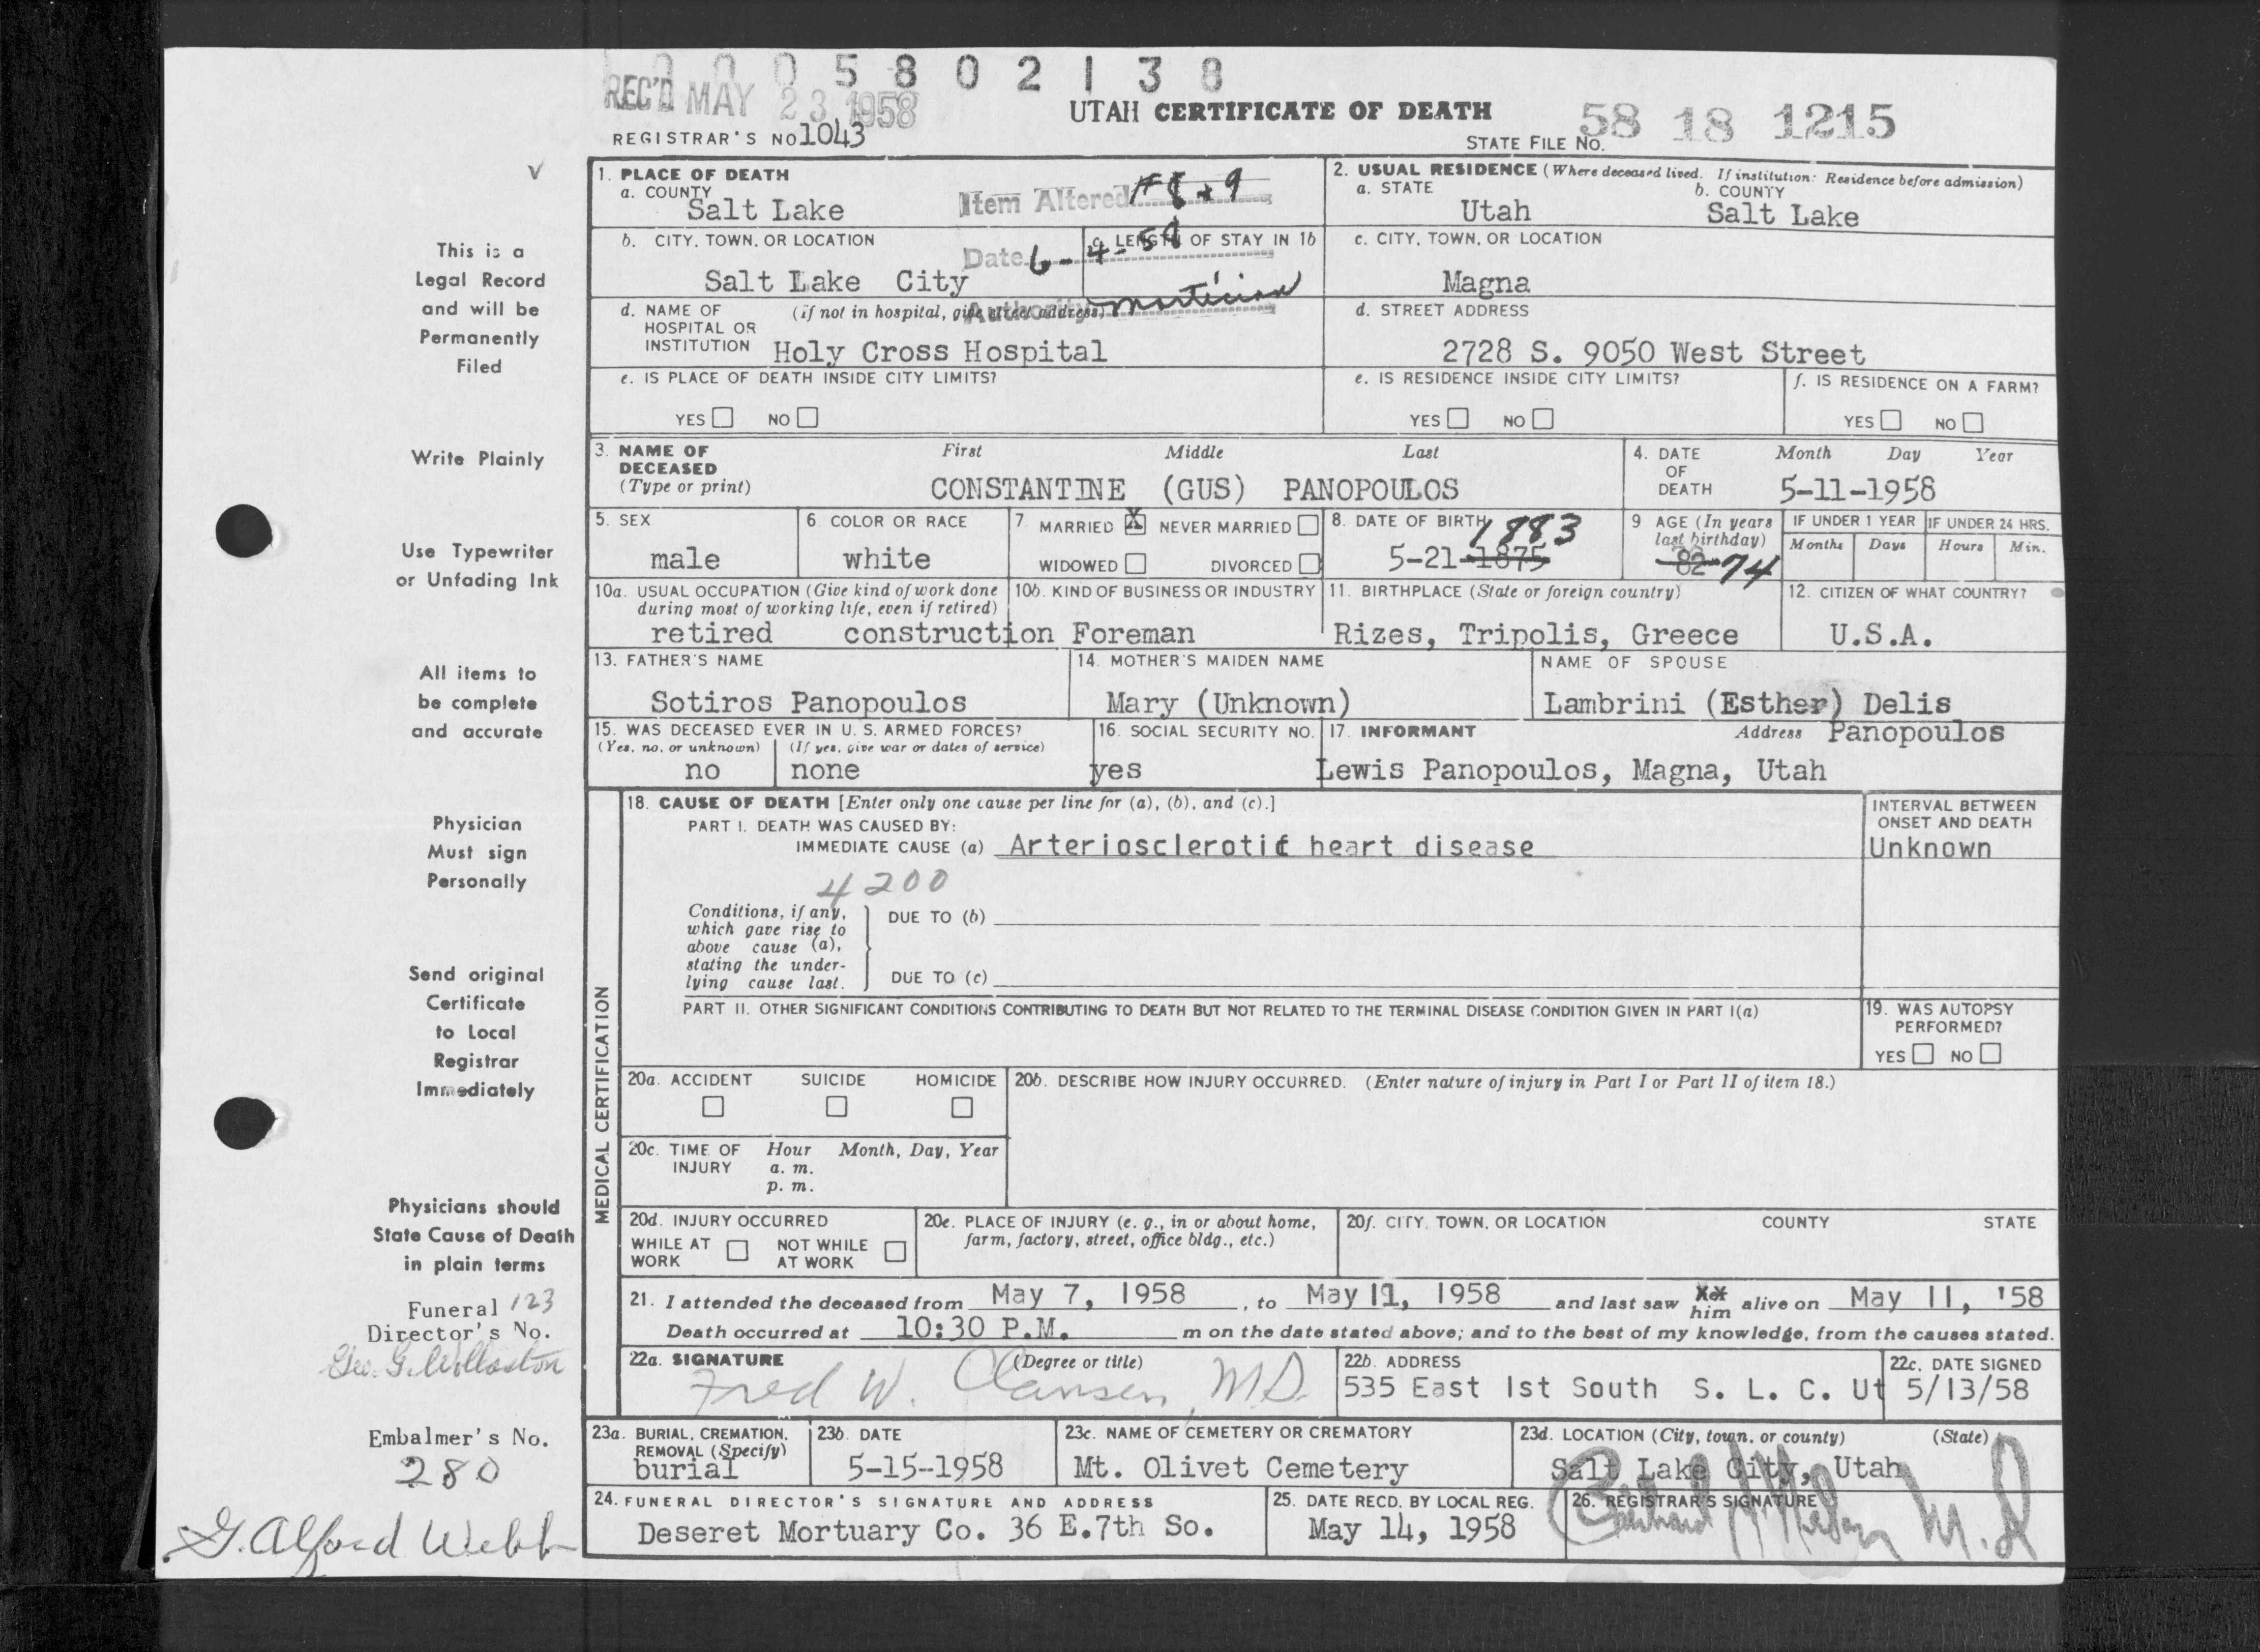 0005802138
REC'D MAY 23 1958
UTAH CERTIFICATE OF DEATH
REGISTRAR'S NO 1043
STATE FILE NO. 58 18 1215
This is a
Legal Record
and will be
Permanently
Filed
Write Plainly
Use Typewriter
or Unfading Ink
All items to
be complete
and accurate
Physician
Must sign
Personally
Send original
Certificate
to Local
Registrar
Immediately
Physicians should
State Cause of Death
in plain terms
Funeral 123
Director's No.
Geo. G. Wollaston
Embalmer's No.
280
G. Alford Webb
1. PLACE OF DEATH
a. COUNTY
Salt Lake
Item Altered #8+9
Date 6-4-58
Authority mortician
2. USUAL RESIDENCE (Where deceased lived. If institution: Residence before admission)
a. STATE b. COUNTY
Utah Salt Lake
b. CITY, TOWN, OR LOCATION
Salt Lake City
c. LENGTH OF STAY IN 1b
c. CITY, TOWN, OR LOCATION
Magna
d. NAME OF HOSPITAL OR INSTITUTION (if not in hospital, give street address)
Holy Cross Hospital
d. STREET ADDRESS
2728 S. 9050 West Street
e. IS PLACE OF DEATH INSIDE CITY LIMITS?
YES NO
e. IS RESIDENCE INSIDE CITY LIMITS?
YES NO
f. IS RESIDENCE ON A FARM?
YES NO
3. NAME OF DECEASED (Type or print)
First Middle Last
CONSTANTINE (GUS) PANOPOULOS
4. DATE OF DEATH
Month Day Year
5-11-1958
5. SEX
male
6. COLOR OR RACE
white
7 MARRIED X NEVER MARRIED
WIDOWED DIVORCED
8. DATE OF BIRTH
5-21-1875 1883
9 AGE (In years last birthday)
82 74
IF UNDER 1 YEAR IF UNDER 24 HRS.
Months Days Hours Min.
10a. USUAL OCCUPATION (Give kind of work done during most of working life, even if retired)
10b. KIND OF BUSINESS OR INDUSTRY
retired construction Foreman
11. BIRTHPLACE (State or foreign country)
Rizes, Tripolis, Greece
12. CITIZEN OF WHAT COUNTRY?
U.S.A.
13. FATHER'S NAME
Sotiros Panopoulos
14. MOTHER'S MAIDEN NAME
Mary (Unknown)
NAME OF SPOUSE
Lambrini (Esther) Delis
Panopoulos
15. WAS DECEASED EVER IN U. S. ARMED FORCES?
(Yes, no, or unknown) (If yes, give war or dates of service)
no none
16. SOCIAL SECURITY NO.
yes
17. INFORMANT Address
Lewis Panopoulos, Magna, Utah
MEDICAL CERTIFICATION
18. CAUSE OF DEATH [Enter only one cause per line for (a), (b), and (c).]
INTERVAL BETWEEN ONSET AND DEATH
PART I. DEATH WAS CAUSED BY:
IMMEDIATE CAUSE (a) Arteriosclerotic heart disease
Unknown
4200
Conditions, if any, which gave rise to above cause (a), stating the underlying cause last.
DUE TO (b)
DUE TO (c)
PART II. OTHER SIGNIFICANT CONDITIONS CONTRIBUTING TO DEATH BUT NOT RELATED TO THE TERMINAL DISEASE CONDITION GIVEN IN PART I(a)
19. WAS AUTOPSY PERFORMED?
YES NO
20a. ACCIDENT SUICIDE HOMICIDE
20b. DESCRIBE HOW INJURY OCCURRED. (Enter nature of injury in Part I or Part II of item 18.)
20c. TIME OF INJURY Hour Month, Day, Year
a. m.
p. m.
20d. INJURY OCCURRED
WHILE AT WORK NOT WHILE AT WORK
20e. PLACE OF INJURY (e. g., in or about home, farm, factory, street, office bldg., etc.)
20f. CITY, TOWN, OR LOCATION COUNTY STATE
21. I attended the deceased from May 7, 1958, to May 11, 1958 and last saw him alive on May 11, '58
Death occurred at 10:30 P.M. m on the date stated above; and to the best of my knowledge, from the causes stated.
22a. SIGNATURE (Degree or title)
Fred W. Clausen, M.D.
22b. ADDRESS
535 East 1st South S. L. C. Ut
22c. DATE SIGNED
5/13/58
23a. BURIAL, CREMATION, REMOVAL (Specify)
burial
23b. DATE
5-15-1958
23c. NAME OF CEMETERY OR CREMATORY
Mt. Olivet Cemetery
23d. LOCATION (City, town, or county) (State)
Salt Lake City, Utah
24. FUNERAL DIRECTOR'S SIGNATURE AND ADDRESS
Deseret Mortuary Co. 36 E.7th So.
25. DATE RECD. BY LOCAL REG.
May 14, 1958
26. REGISTRAR'S SIGNATURE
M.D